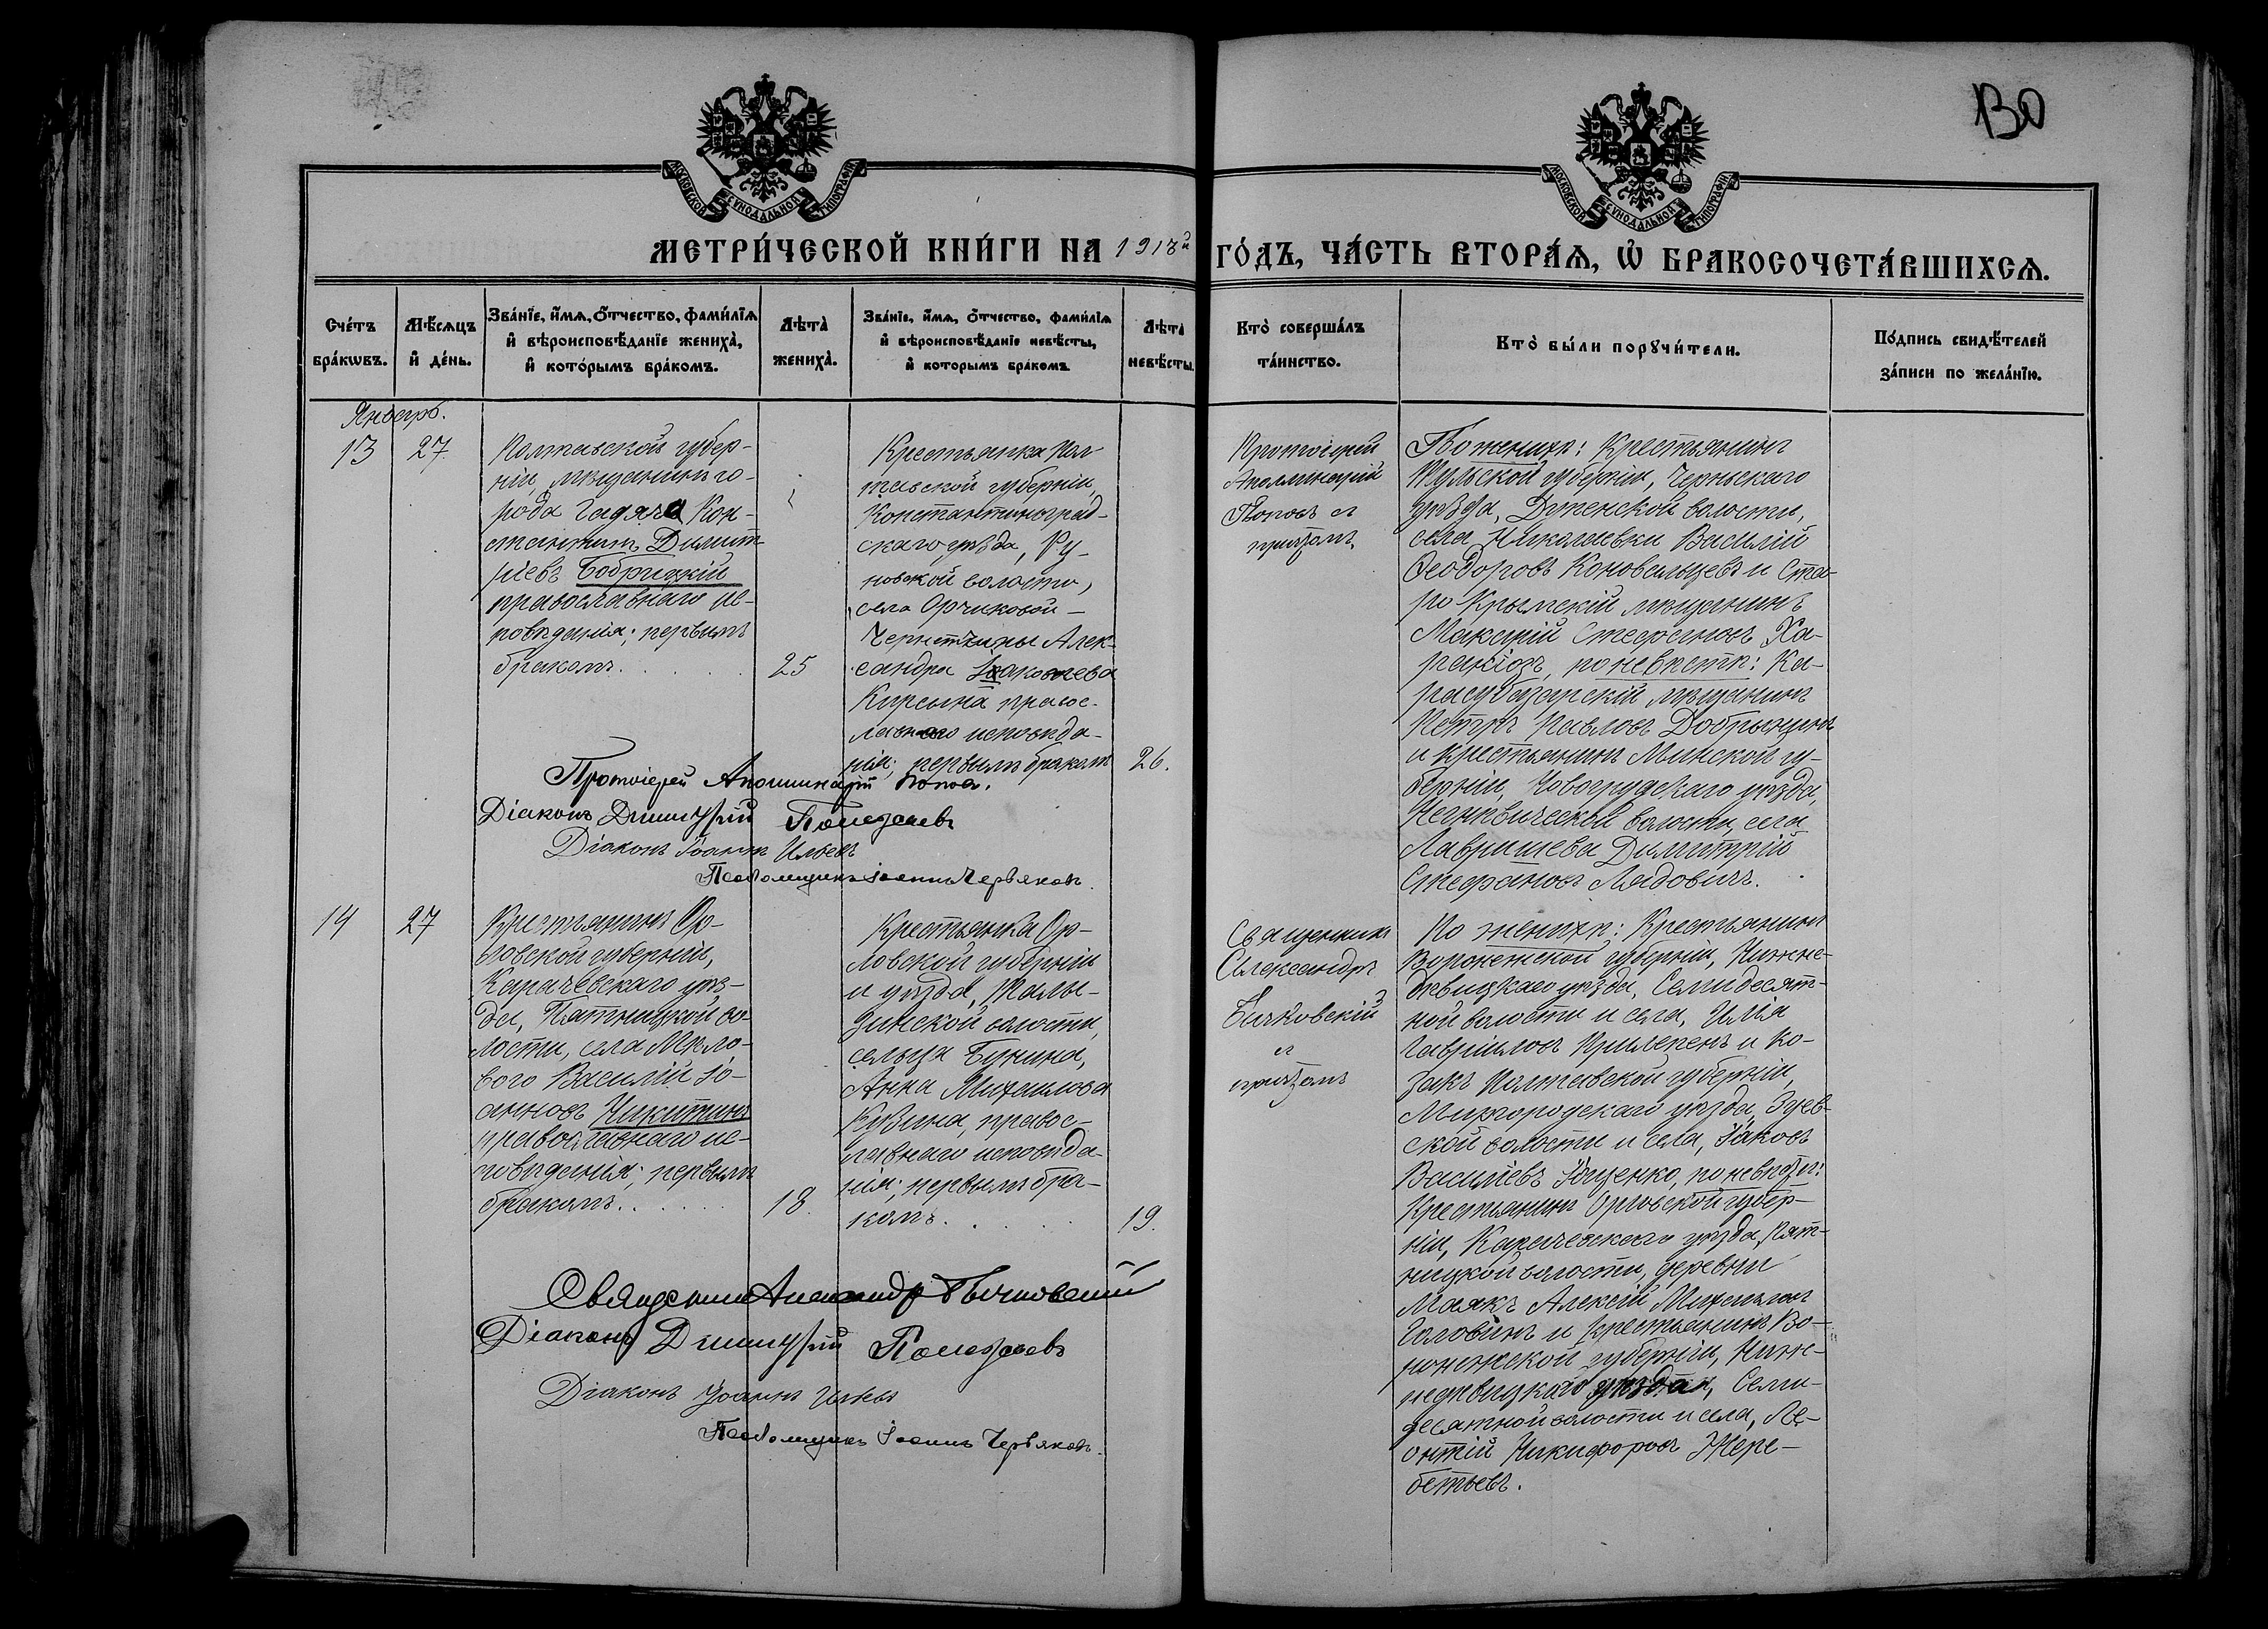 130
МОСКОВСКОЙ СУНОДАЛЬНОЙ ТИПОГРАФІИ
МОСКОВСКОЙ СУНОДАЛЬНОЙ ТИПОГРАФІИ
МЕТРИ́ЧЕСКОЙ КНИ́ГИ НА 1918й ГО́ДЪ, ЧА́СТЬ ВТОРА́Ѧ, Ѽ БРАКОСОЧЕТА́ВШИХСѦ.
Сче́тъ бра́кѡвъ.
Мѣ́сѧцъ и҆ де́нь.
Зва́нїе, и҆́мѧ, ѻ҆́тчество, фами́лїѧ
и҆ вѣроисповѣ́данїе жениха̀,
и҆ кото́рымъ бра́комъ.
Лѣта̀ жениха̀.
Зва́нїе, и҆́мѧ, ѻ҆́тчество, фами́лїѧ
и҆ вѣроисповѣ́данїе невѣ́сты,
и҆ кото́рымъ бра́комъ.
Лѣта̀ невѣ́сты.
Кто̀ соверша́лъ
та́инство.
Кто̀ бы́ли порꙋчи́тели.
По́дпись свидѣ́телей
за́писи по жела́нїю.
Январь.
13
27
Полтавской губер-
ніи, мѣщанинъ го-
рода Гадяча Кон-
стантинъ Димит-
ріевъ Бобрицкій
православнаго ис-
повѣданія; первымъ
бракомъ.
25
Крестьянка Пол-
тавской губерніи,
Константиноград-
скаго уѣзда, Ру-
новской волости,
села Орчиковой-
Чернетчины Алек-
сандра Іаковлева
Кирсына правос-
лавнаго исповѣда-
нія; первымъ бракомъ
26.
Протоіерей
Аполлинарій
Поповъ съ
причтомъ.
По женихѣ: Крестьянинъ
Тульской губерніи, Чернскаго
уѣзда, Дупенской волости,
села Николаевки Василій
Феодоровъ Коновальцевъ и Ста-
ро-Крымскій мѣщанинъ
Макарій Стефановъ Ха-
по невѣстѣ: Ка-
расубазарскій мѣщанинъ
Петръ Павловъ Добрынинъ
и крестьянинъ Минской гу-
берніи, Новогрудскаго уѣзда,
волости, села
Лавришева Димитрій
Стефановъ Лядовичъ.
Протоіерей Аполлинарій Попов.
Діаконъ Димитрій Полежаевъ
Діаконъ Іоаннъ Ильевъ
Псаломщикъ Іоаннъ Червяковъ.
14
27
Крестьянинъ Ор-
ловской губерніи,
Карачевскаго уѣз-
да, Пятницкой во-
лости, села Мѣло-
вого Василій Іо-
анновъ Никитинъ
православнаго ис-
повѣданія; первымъ
бракомъ.
18
Крестьянка Ор-
ловской губерніи
и уѣзда,Талы-
зинской волости,
сельца Бунина,
Анна Михаилова
Кузина, правос-
лавнаго исповѣда-
нія; первымъ бра-
комъ.
19.
Священникъ
Александръ
Бычковскій
съ
причтомъ
По женихѣ: Крестьянинъ
Воронежской губерніи, Нижне-
дѣвицкаго уѣзда, Семидесят-
ной волости и села, Илія
Гавріиловъ Прилепенъ и ко-
закъ Полтавской губерніи,
Миргородскаго уѣзда, Зуев-
ской волости и села, Іаковъ
Васильевъ Яценко, по невѣстѣ:
Крестьянинъ Орловской губер-
ніи, Карачевскаго уѣзда, Пят-
ницкой волости, деревни
Маякъ Алексій Михаиловъ
Головинъ и крестьянинъ Во-
ронежской губерніи, Ниж-
недѣвицкаго уѣзда, Семи-
десятной волости и села, Ле-
онтій Никифоровъ Жере-
бетьевъ.
Священник Александр Бычковский
Діаконъ Димитрій Полежаевъ
Діаконъ Іоаннъ Ильевъ
Псаломщикъ Іоаннъ Червяковъ.